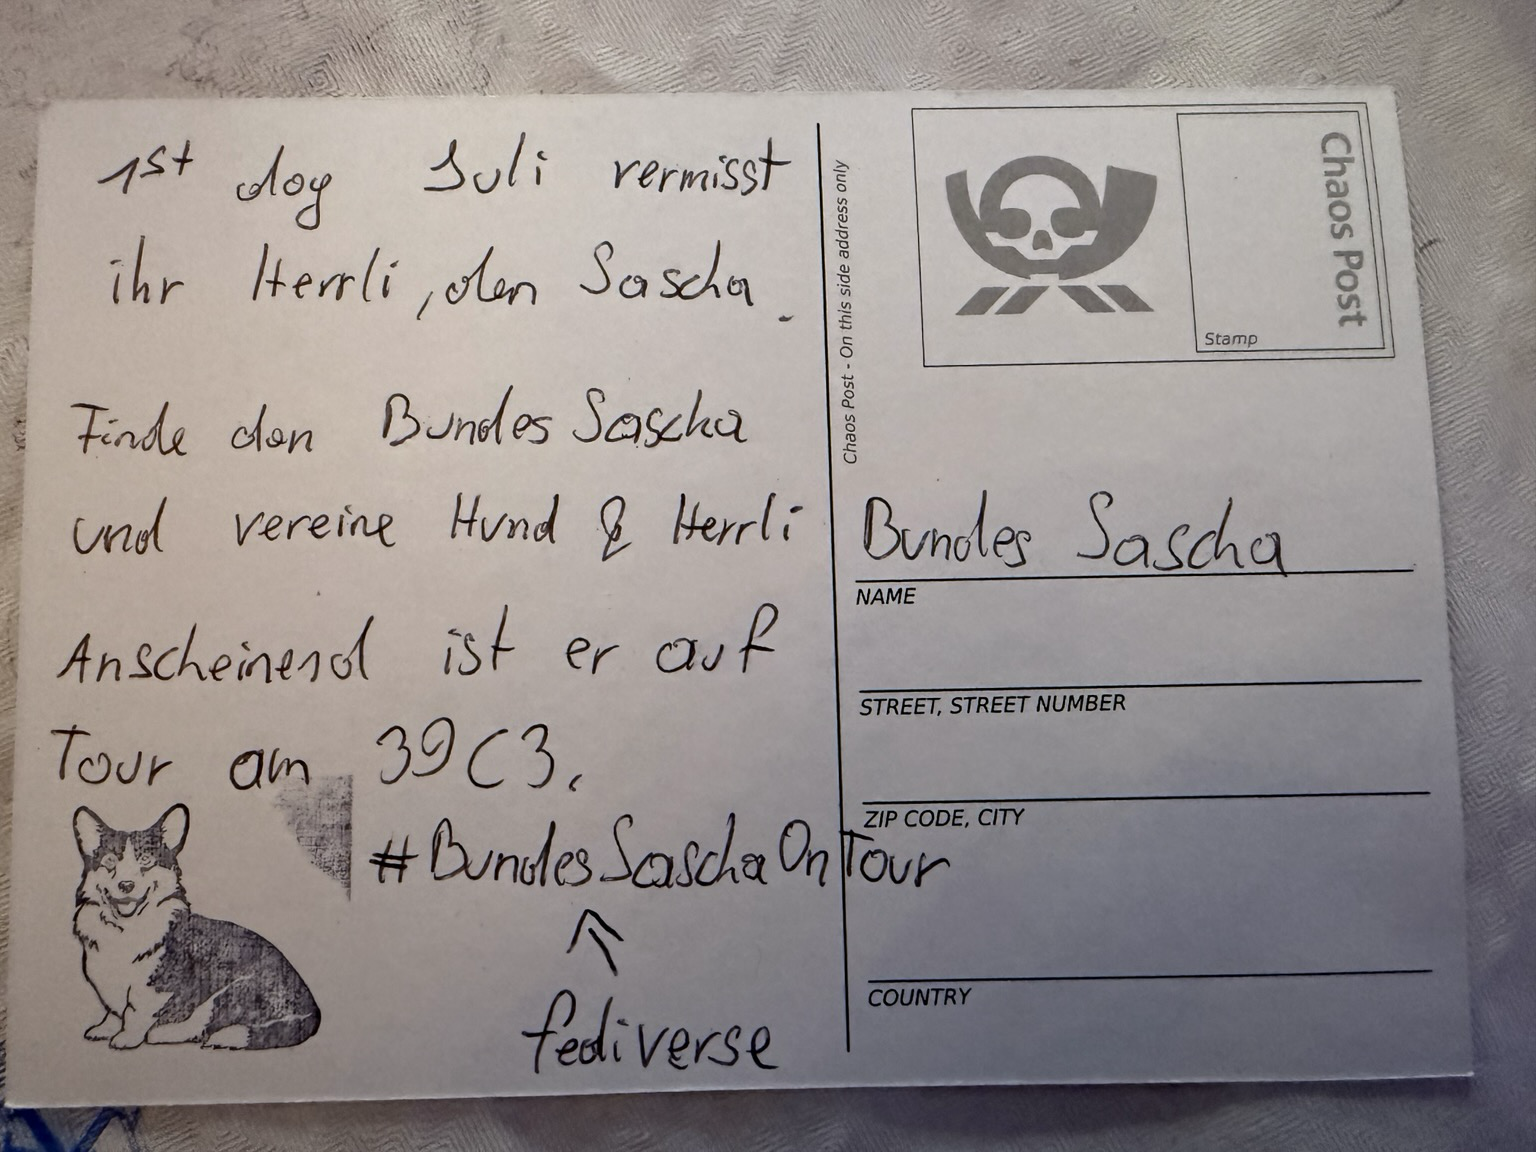 1st dog Juli vermisst
ihr Herrli, den Sascha.
Finde den Bundes Sascha
und vereine Hund & Herrli
Anscheinend ist er auf
Tour am 39C3.
#BundesSaschaOnTour
fediverse
Chaos Post - On this side address only
Chaos Post
Stamp
Bundes Sascha
NAME
STREET, STREET NUMBER
ZIP CODE, CITY
COUNTRY